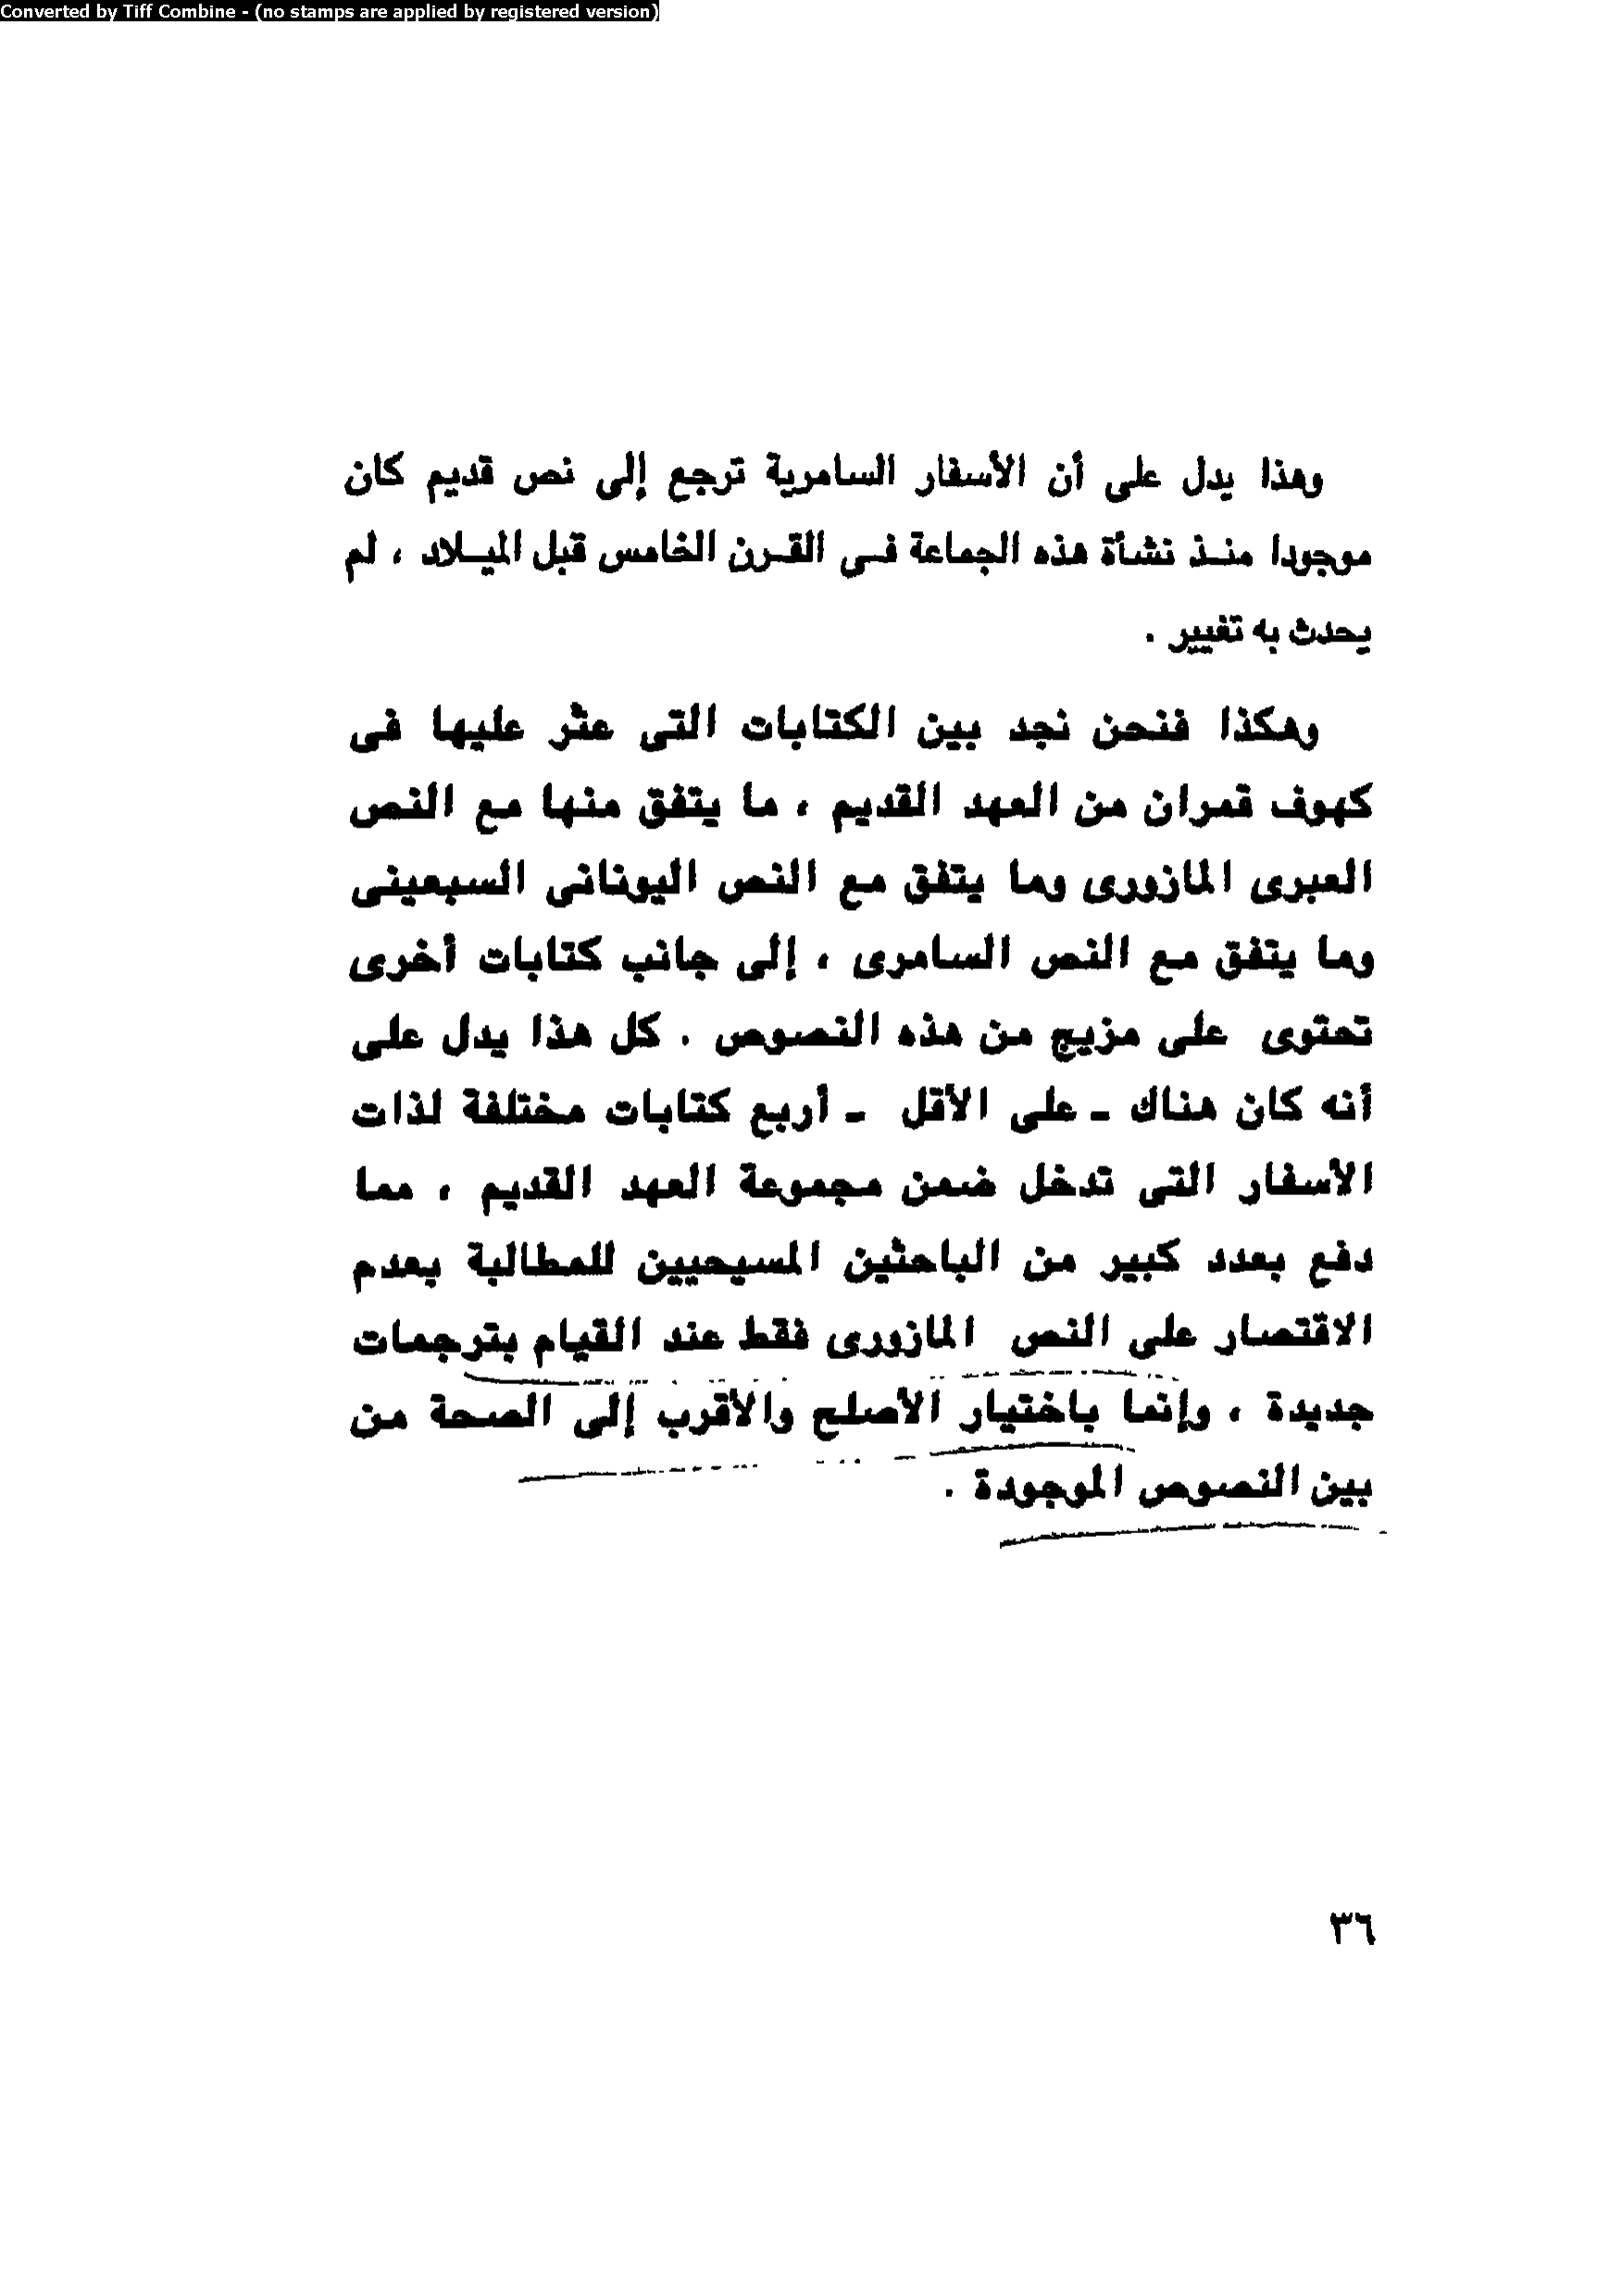 Converted by Tiff Combine - (no stamps are applied by registered version)
وهذا يدل على أن الأسفار السامرية ترجع إلى نص قديم كان
موجودا منـذ نشأة هذه الجماعة فـى القـرن الخامس قبل الميـلاد ، لم
يحدث به تغيير .
وهكذا فنحن نجد بين الكتابات التى عثر عليها فى
كهوف قمران من العهد القديم ، ما يتفق منها مع النص
العبرى المازورى وما يتفق مع النص اليونانى السبعينى
وما يتفق مع النص السامرى ، إلى جانب كتابات أخرى
تحتوى على مزيج من هذه النصوص . كل هذا يدل على
أنه كان هناك ـ على الأقل ـ أربع كتابات مختلفة لذات
الأسفار التى تدخل ضمن مجموعة العهد القديم ، مما
دفع بعدد كبير من الباحثين المسيحيين للمطالبة بعدم
الاقتصار على النص المازورى فقط عند القيام بترجمات
جديدة ، وإنما باختيار الأصلح والأقرب إلى الصحة من
بين النصوص الموجودة .
٣٦